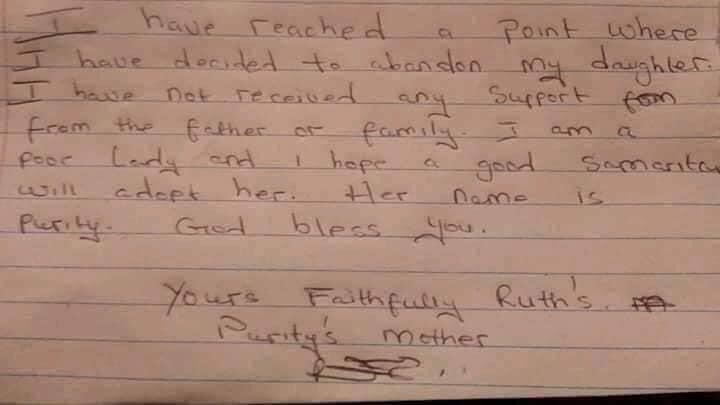 I have reached a point where
I have decided to abandon my daughter.
I have not received any support fom
from the father or family. I am a
poor Lady and i hope a good Samaritan
will adopt her. Her name is
Purity. God bless you.
Yours Faithfully Ruth's.
Purity's mother